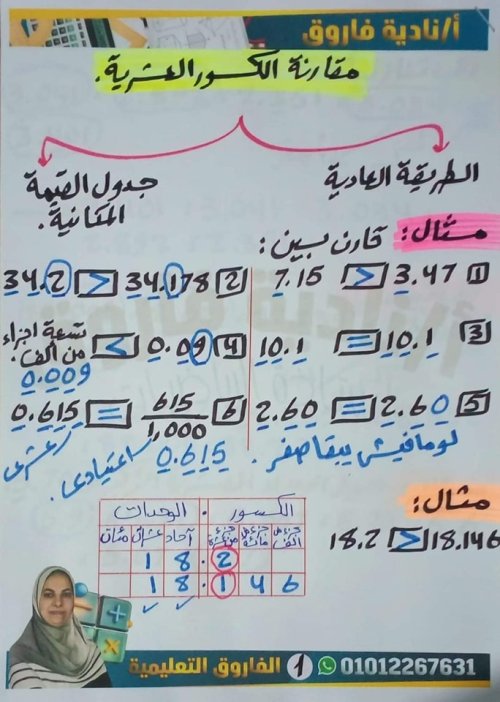 أ/نادية فاروق
مقارنة الكسور العشرية.
الطريقة العادية
جدول القيمة المكانية.
مثال: قارن بين:
1 3.47 > 7.15
2 34.178 > 34.2
3 10.1 = 10.1
4 0.09 < تسعة اجزاء من ألف.
0.009
5 2.60 = 2.60
6 615/1,000 = 0.615
لو مافيش يبقا صفر.
0.615 اعتيادى.
عشرى
مثال:
18.146 > 18.2
الكسور . الوحدات
جزء من ألف جزء من مائة جزء من عشرة . آحاد عشرات مئات
2 . 8 1
6 4 1 . 8 1
01012267631 1 الفاروق التعليمية